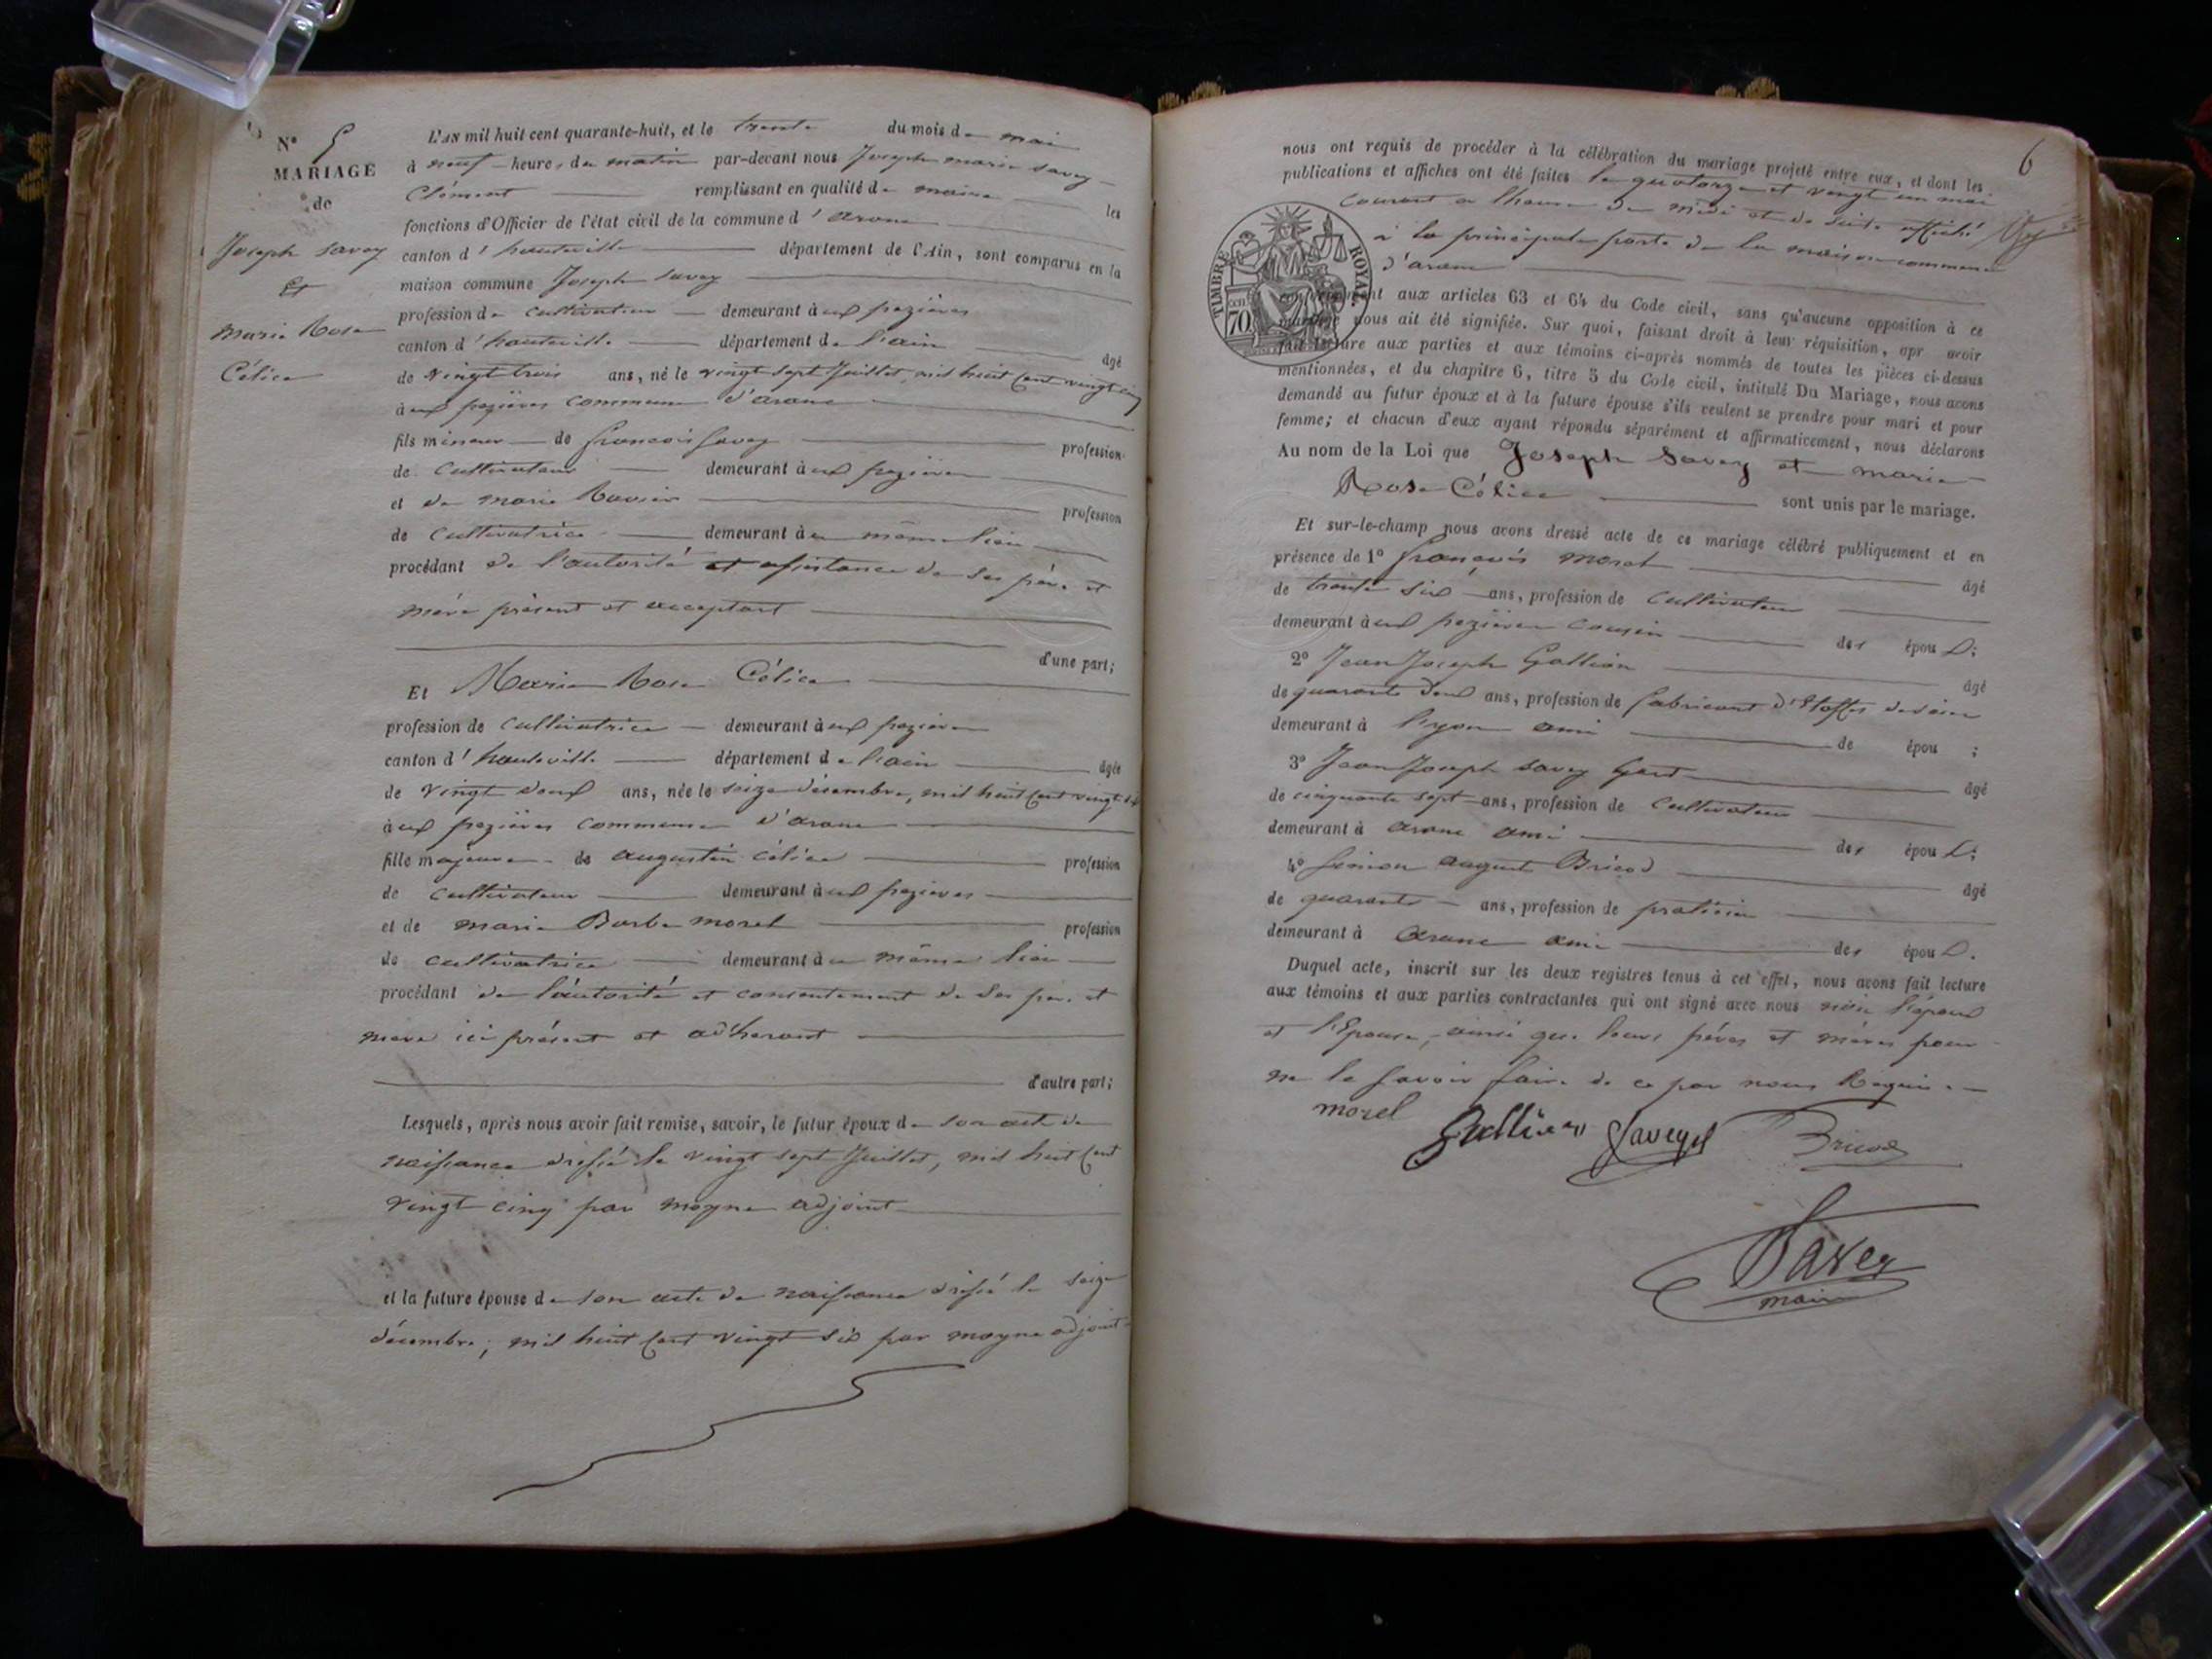 N° 5
MARIAGE
de
Joseph Savey
Et
Marie Rose
Célice
L'AN mil huit cent quarante-huit, et le trente du mois de mai
à neuf heures du matin par-devant nous Joseph marie Savey
Clément remplissant en qualité de maire les
fonctions d'Officier de l'état civil de la commune d'arane
canton d'hauteville département de l'Ain, sont comparus en la
maison commune Joseph Savey
profession de cultivateur demeurant à ux pezières
canton d'hauteville département de l'ain âgé
de vingt trois ans, né le vingt sept Juillet, mil huit cent vingt cinq
à ux pezières commune d'arane
fils mineur de francois Savey profession
de cultivateur demeurant à ux pezières
et de marie Ravier profession
de cultivatrice demeurant à u même lieu
procédant de l'autorité et assistance de ses père et
mère présent et acceptant
d'une part;
Et Marie Rose Célice
profession de cultivatrice demeurant à ux pezières
canton d'hauteville département de l'ain âgée
de vingt deux ans, née le seize décembre, mil huit cent vingt six
à ux pezières commune d'arane
fille majeure de augustin célice profession
de cultivateur demeurant à ux pezières
et de marie Barbe morel profession
de cultivatrice demeurant à u même lieu
procédant de l'autorité et consentement de ses père et
mere ici présent et adhérant
d'autre part;
Lesquels, après nous avoir fait remise, savoir, le futur époux de son acte de
naissance dressé le vingt sept Juillet, mil huit cent
vingt cinq par moyne adjoint
et la future épouse de son acte de naissance dressé le seize
décembre, mil huit cent vingt six par moyne adjoint
6
nous ont requis de procéder à la célébration du mariage projeté entre eux, et dont les
publications et affiches ont été faites le quatorze et vingt un mai
courant a l'heure de midi et de suite affiché
à la principale porte de la maison commune
d'arane
TIMBRE ROYAL
cen 70
conformément aux articles 63 et 64 du Code civil, sans qu'aucune opposition à ce
mariage nous ait été signifiée. Sur quoi, faisant droit à leur réquisition, apr avoir
fait lecture aux parties et aux témoins ci-après nommés de toutes les pièces ci-dessus
mentionnées, et du chapitre 6, titre 5 du Code civil, intitulé Du Mariage, nous avons
demandé au futur époux et à la future épouse s'ils veulent se prendre pour mari et pour
femme; et chacun d'eux ayant répondu séparément et affirmativement, nous déclarons
Au nom de la Loi que Joseph Savey et marie
Rose Célice sont unis par le mariage.
Et sur-le-champ nous avons dressé acte de ce mariage célébré publiquement et en
présence de 1° françois morel âgé
de trente six ans, profession de cultivateur
demeurant à ux pezières cousin des épou x;
2° Jean Joseph Gallien âgé
de quarante deux ans, profession de fabricant d'Etoffes de soie
demeurant à Lyon ami de épou ;
3° Jean Joseph Savey Gard âgé
de cinquante sept ans, profession de cultivateur
demeurant à arane ami des épou x;
4° Simon august Bricod âgé
de quarante ans, profession de praticien
demeurant à arane ami des épou x.
Duquel acte, inscrit sur les deux registres tenus à cet effet, nous avons fait lecture
aux témoins et aux parties contractantes qui ont signé avec nous non l'époux
et l'Epouse, ainsi que leurs pères et mères pour
ne le savoir faire de ce par nous Requis
morel Gallien Saveyg Bricod
Savey
maire